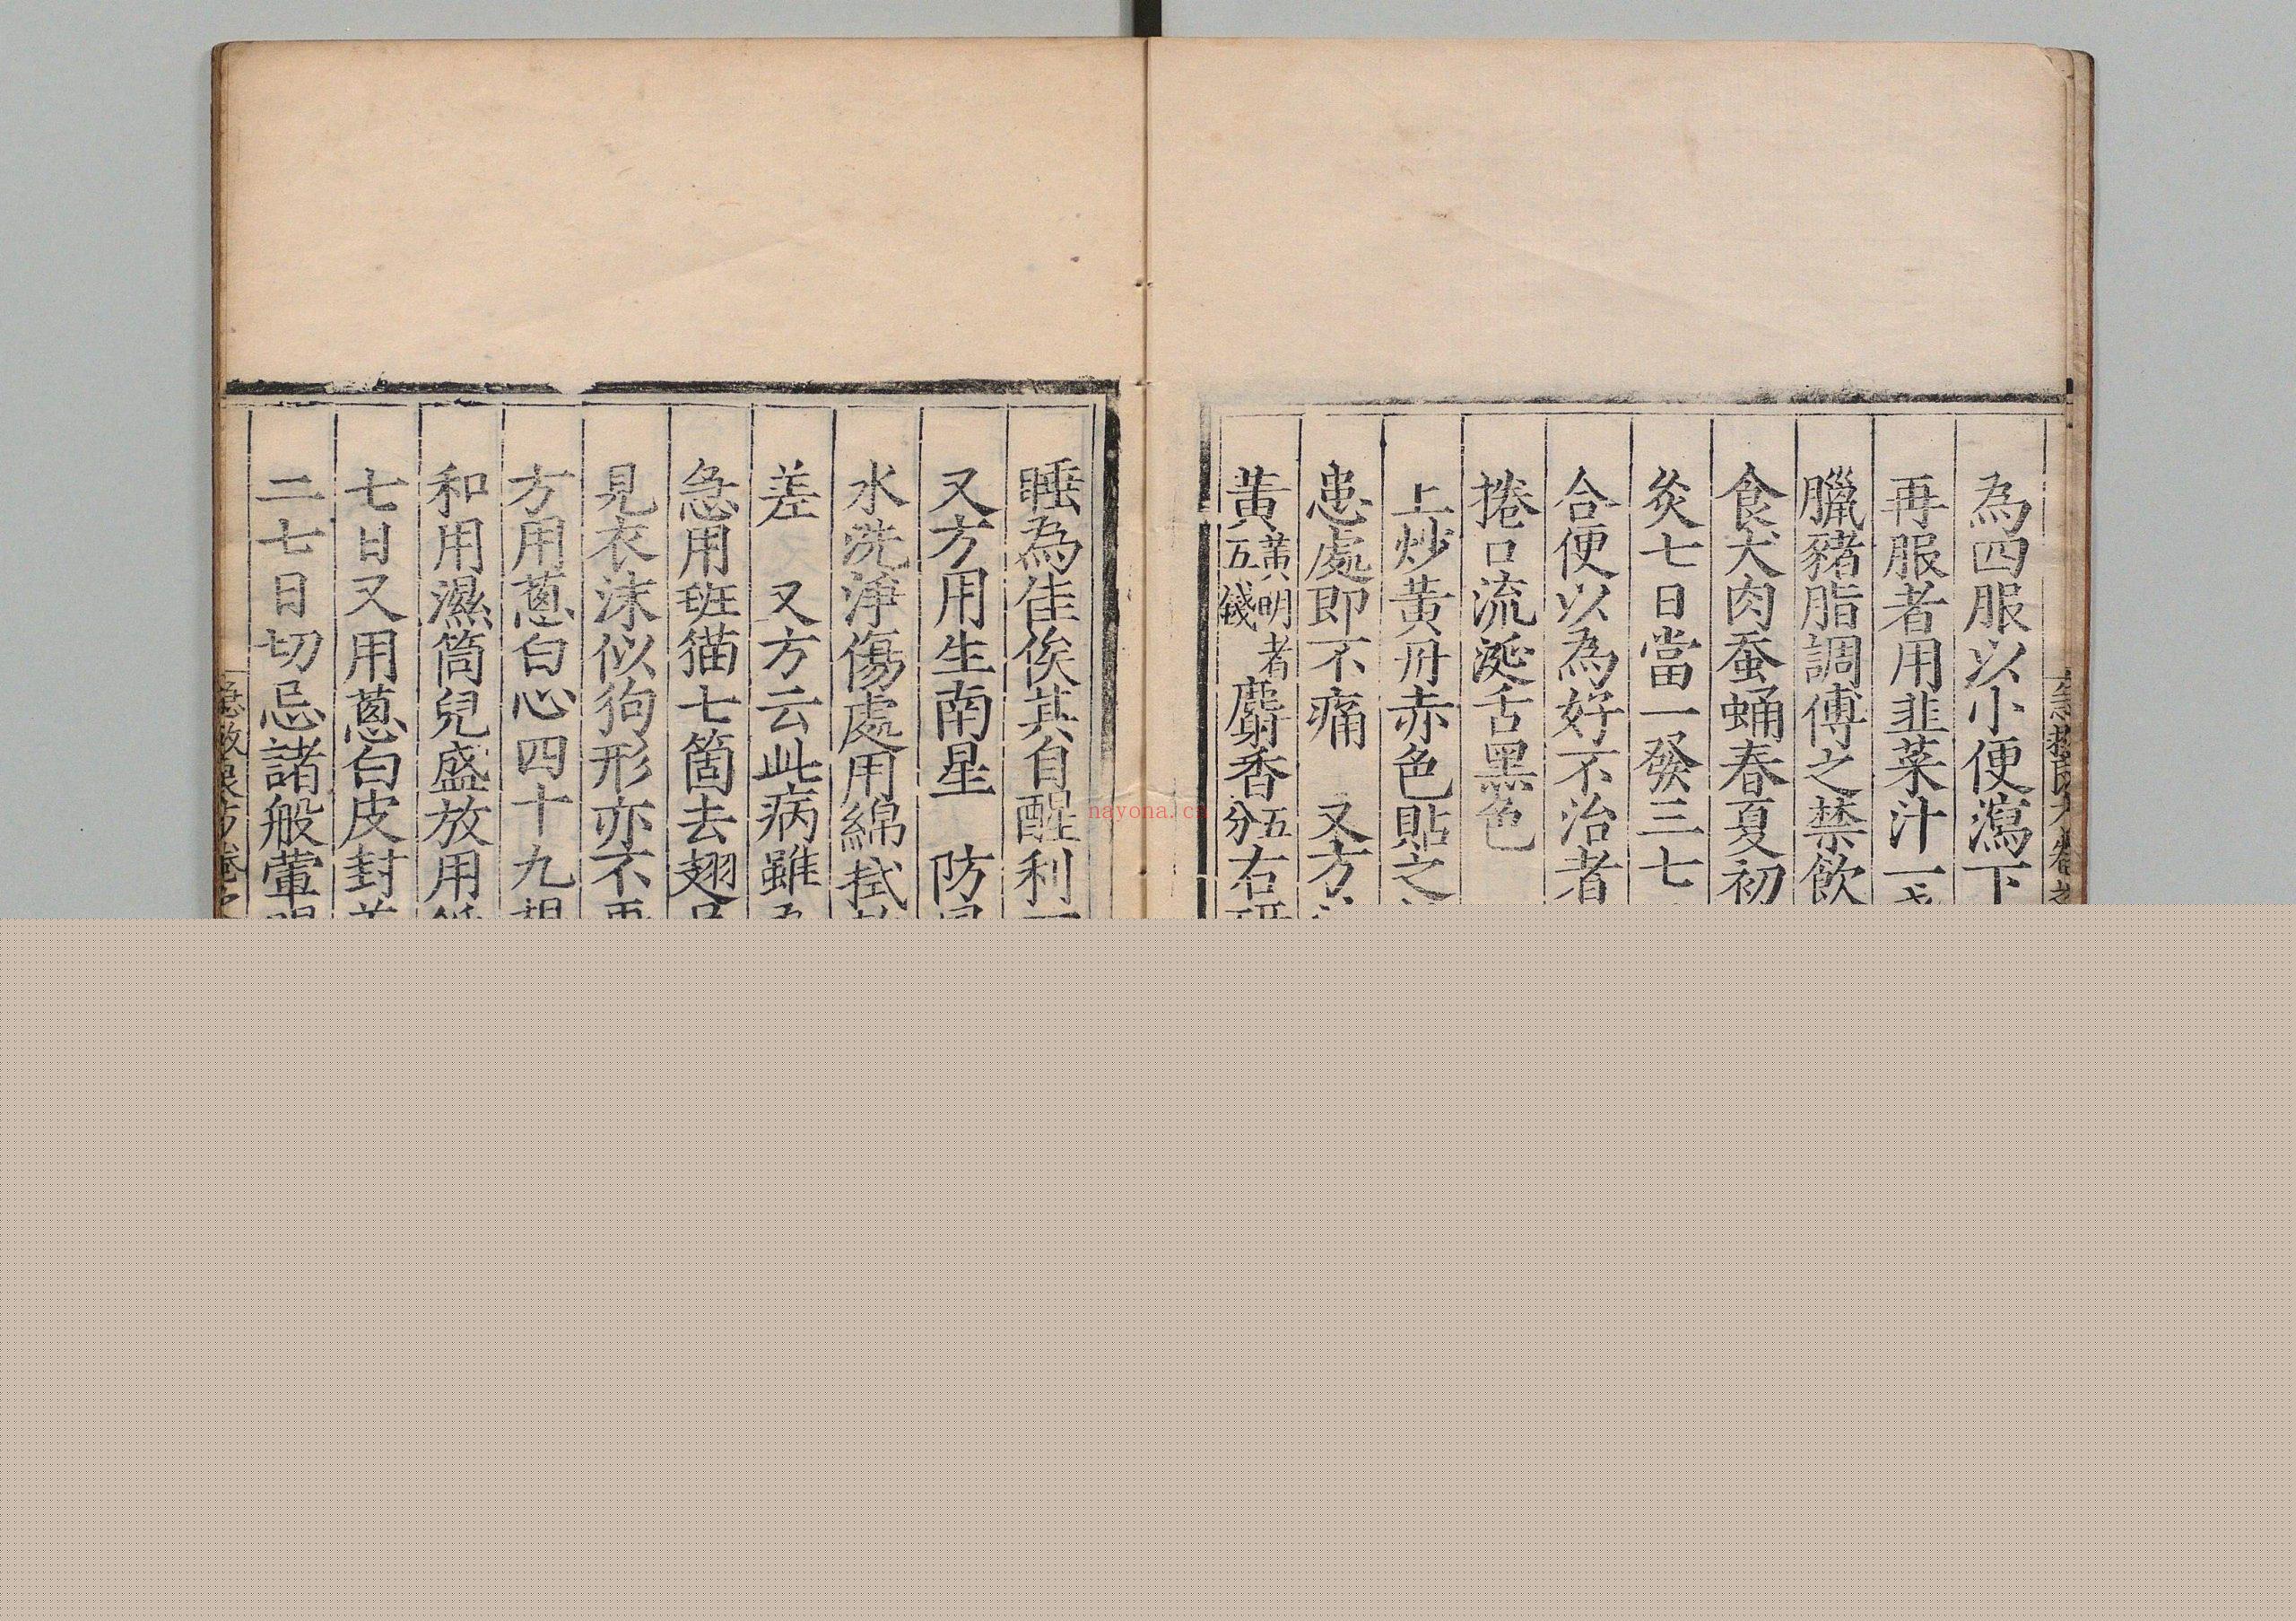 為四服以小便瀉下
再服者用韭菜汁一
臘豬脂調傅之禁飲
食犬肉蚕蛹春夏初
灸七日當一發三七
合便以為好不治者
捲口流涎舌黑色
上炒黃丹赤色貼之
患處即不痛 又方
黃黃明者五錢麝香五分右研
睡為佳俟其自醒利
又方用生南星 防
水洗淨傷處用綿拭
差 又方云此病雖
急用班猫七箇去翅
見衣沫似狗形亦不再
方用蔥白心四十九
和用濕筒兒盛放用
七日又用蔥白皮封
二七日切忌諸般葷
急救良方卷之
nayona.ca